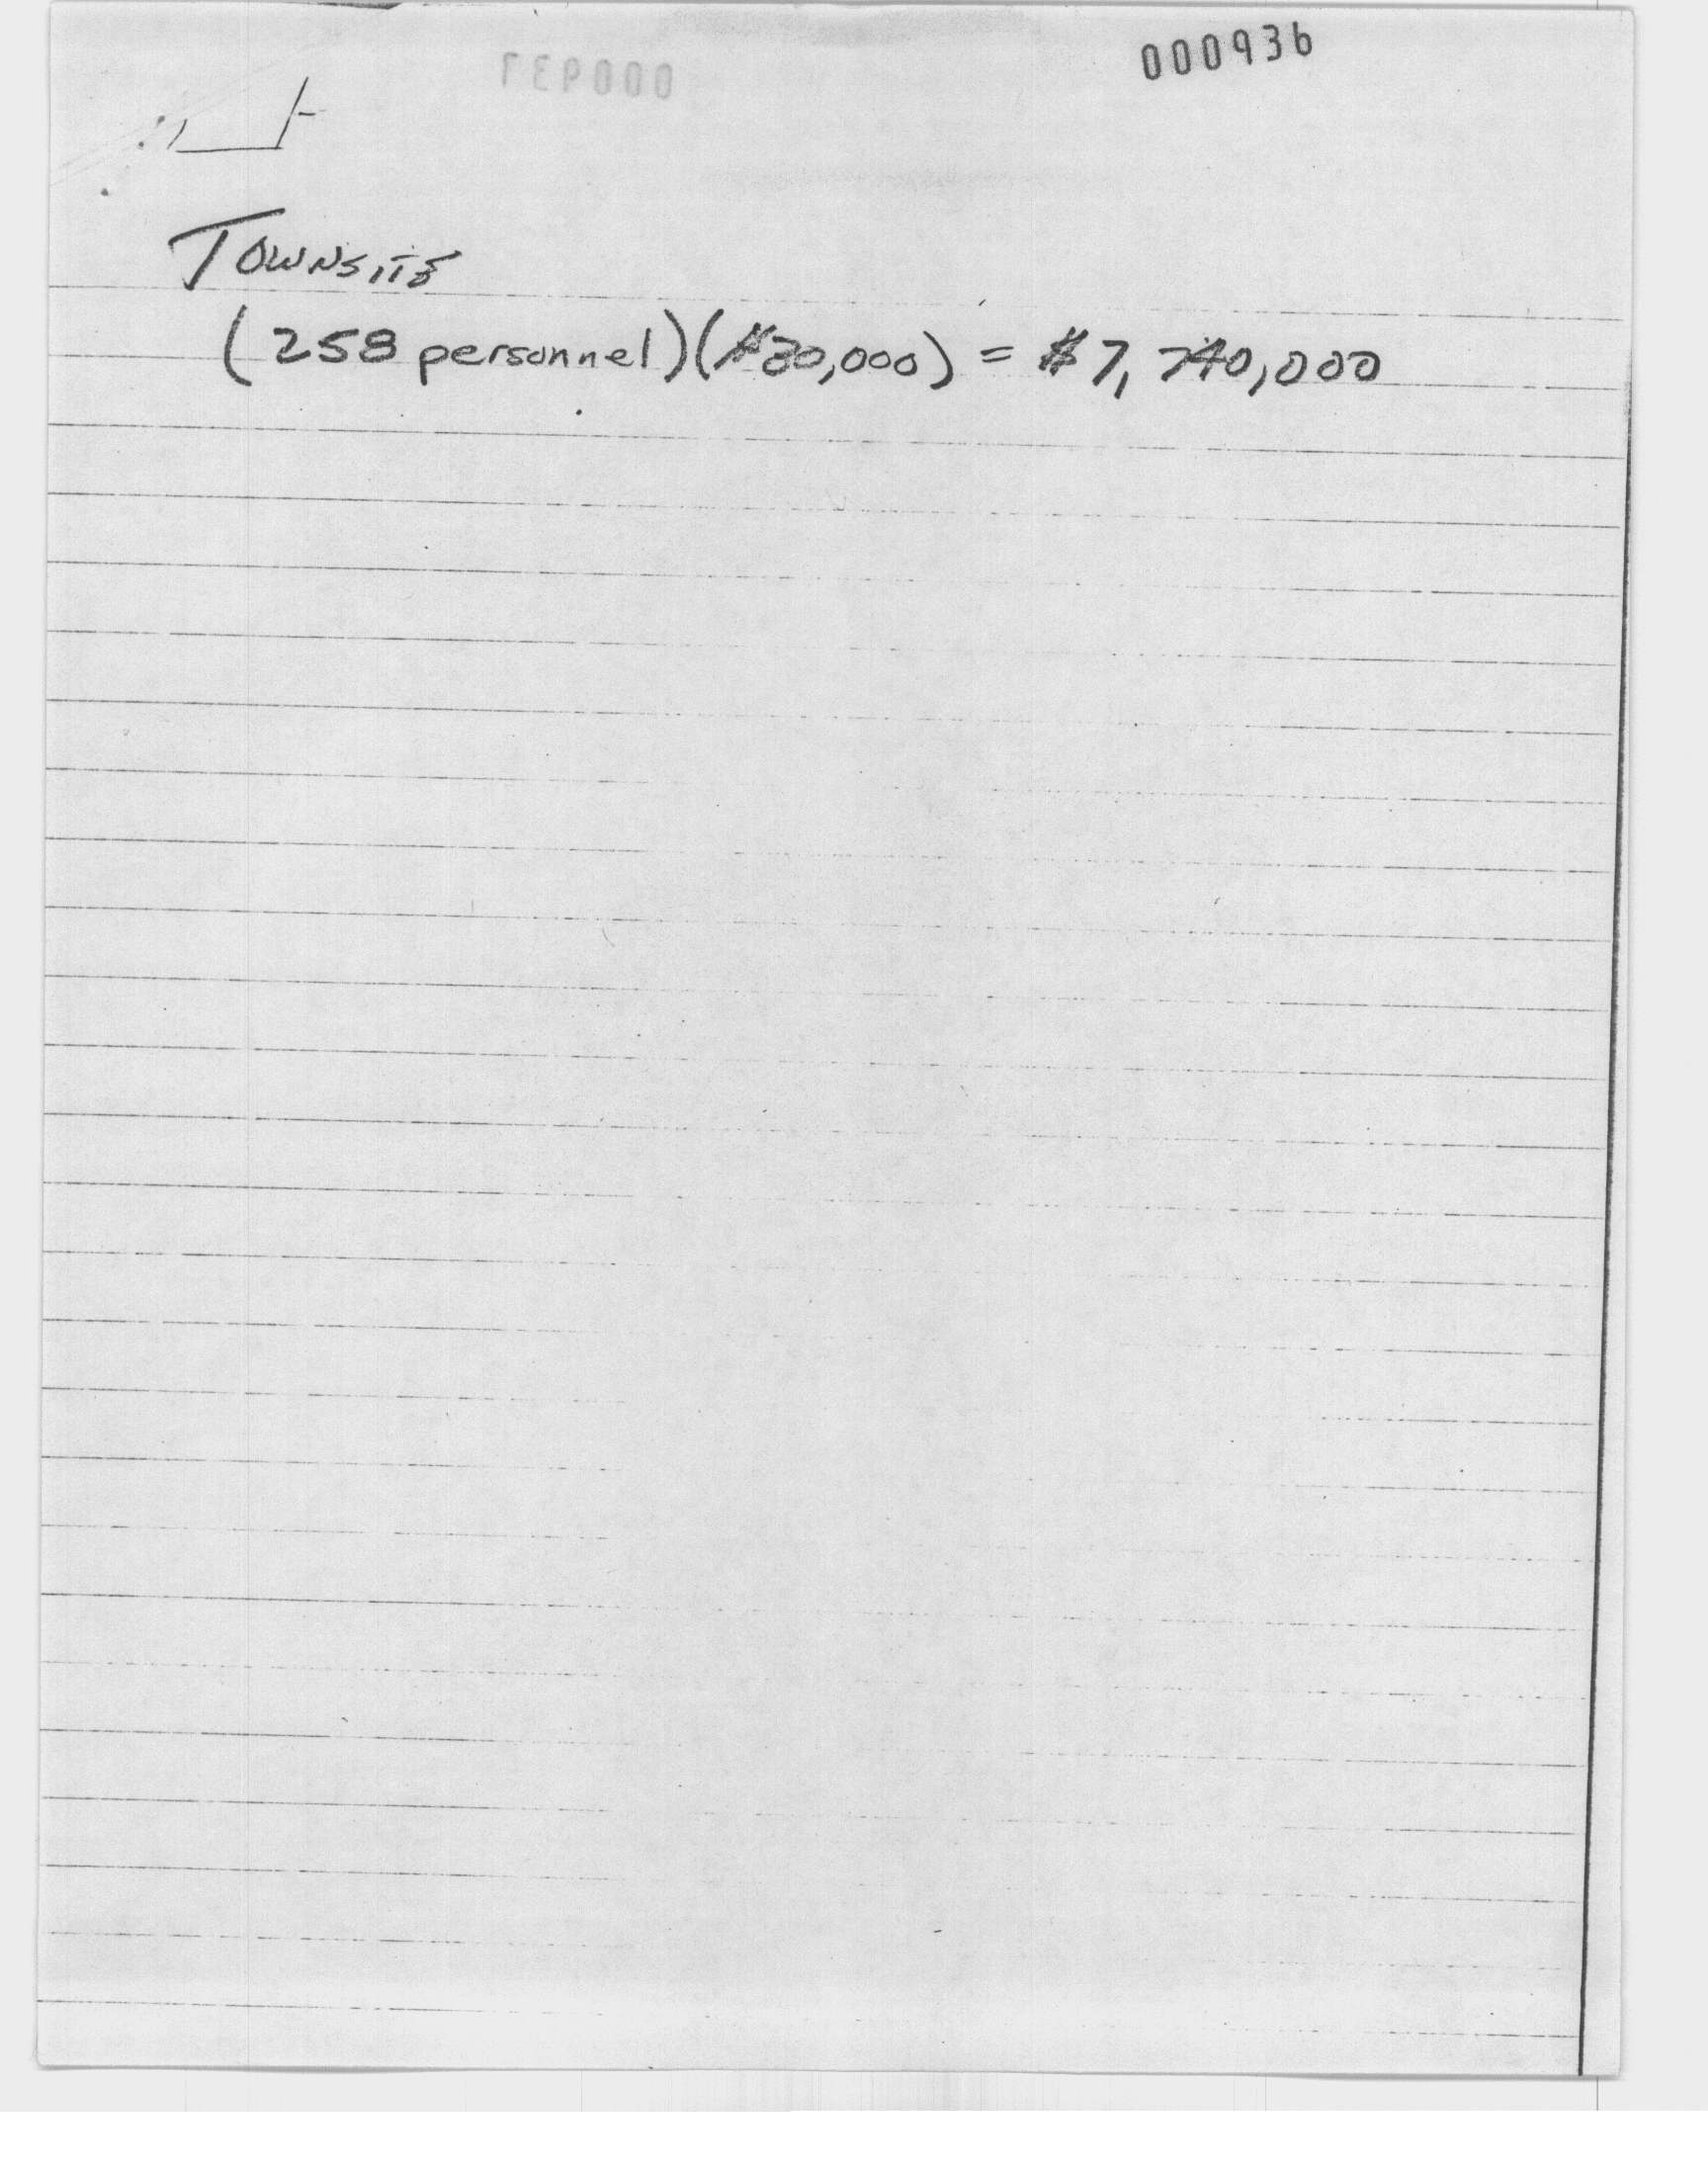 000936
TOWNSITE
(258 personnel)($30,000) = $7,740,000